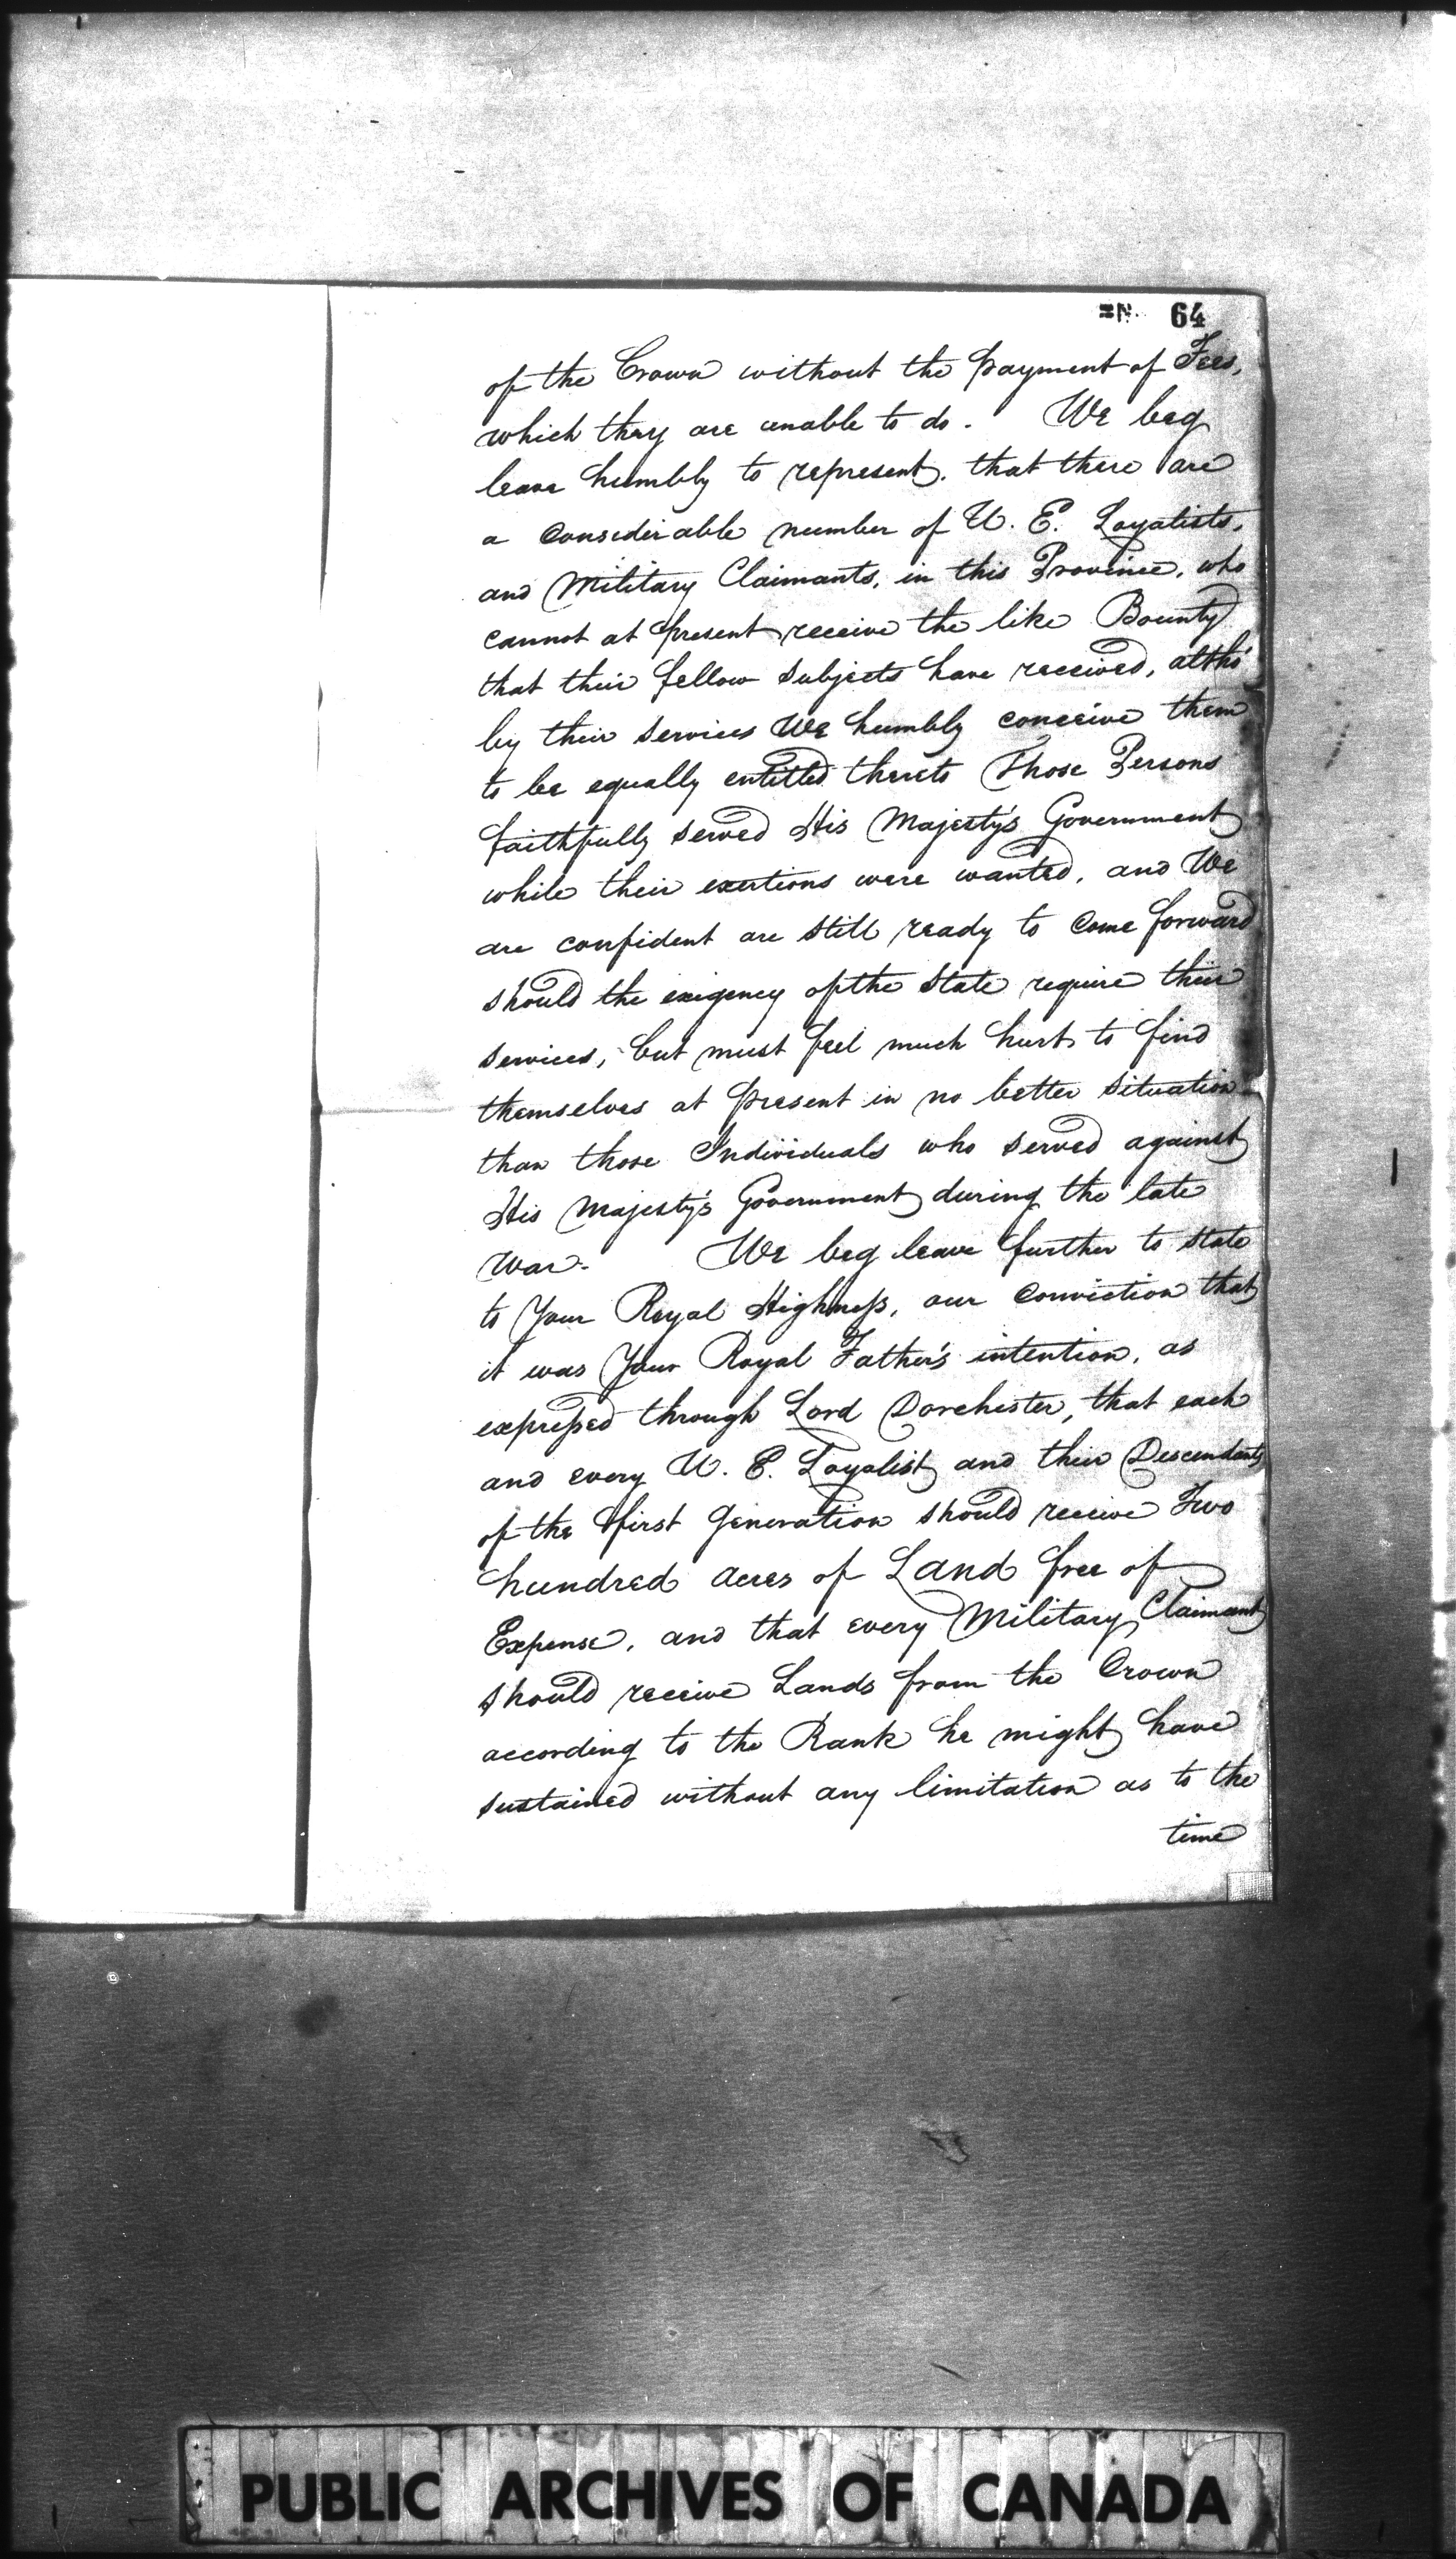 64
of the Crown without the payment of Fees,
which they are unable to do. We beg
leave humbly to represent, that there are
a Considerable number of U. E. Loyalists,
and Military Claimants, in this Province, who
cannot at present receive the like Bounty
that their fellow subjects have received, altho'
by their services We humbly conceive them
to be equally entitled thereto Those Persons
faithfully served His Majesty's Government
while their exertions were wanted, and We
are confident are still ready to Come forward
should the exigency of the State require their
services, but must feel much hurt to find
themselves at present in no better situation
than those Individuals who served against
His Majesty's Government during the late
War. We beg leave further to state
to Your Royal Highness, our Conviction that
it was Your Royal Father's intention, as
expressed through Lord Dorchester, that each
and every U. E. Loyalist and their Descendants
of the first Generation should receive Two
hundred acres of Land free of
Expense, and that every Military Claimant
should receive Lands from the Crown
according to the Rank he might have
sustained without any limitation as to the
time
PUBLIC ARCHIVES OF CANADA